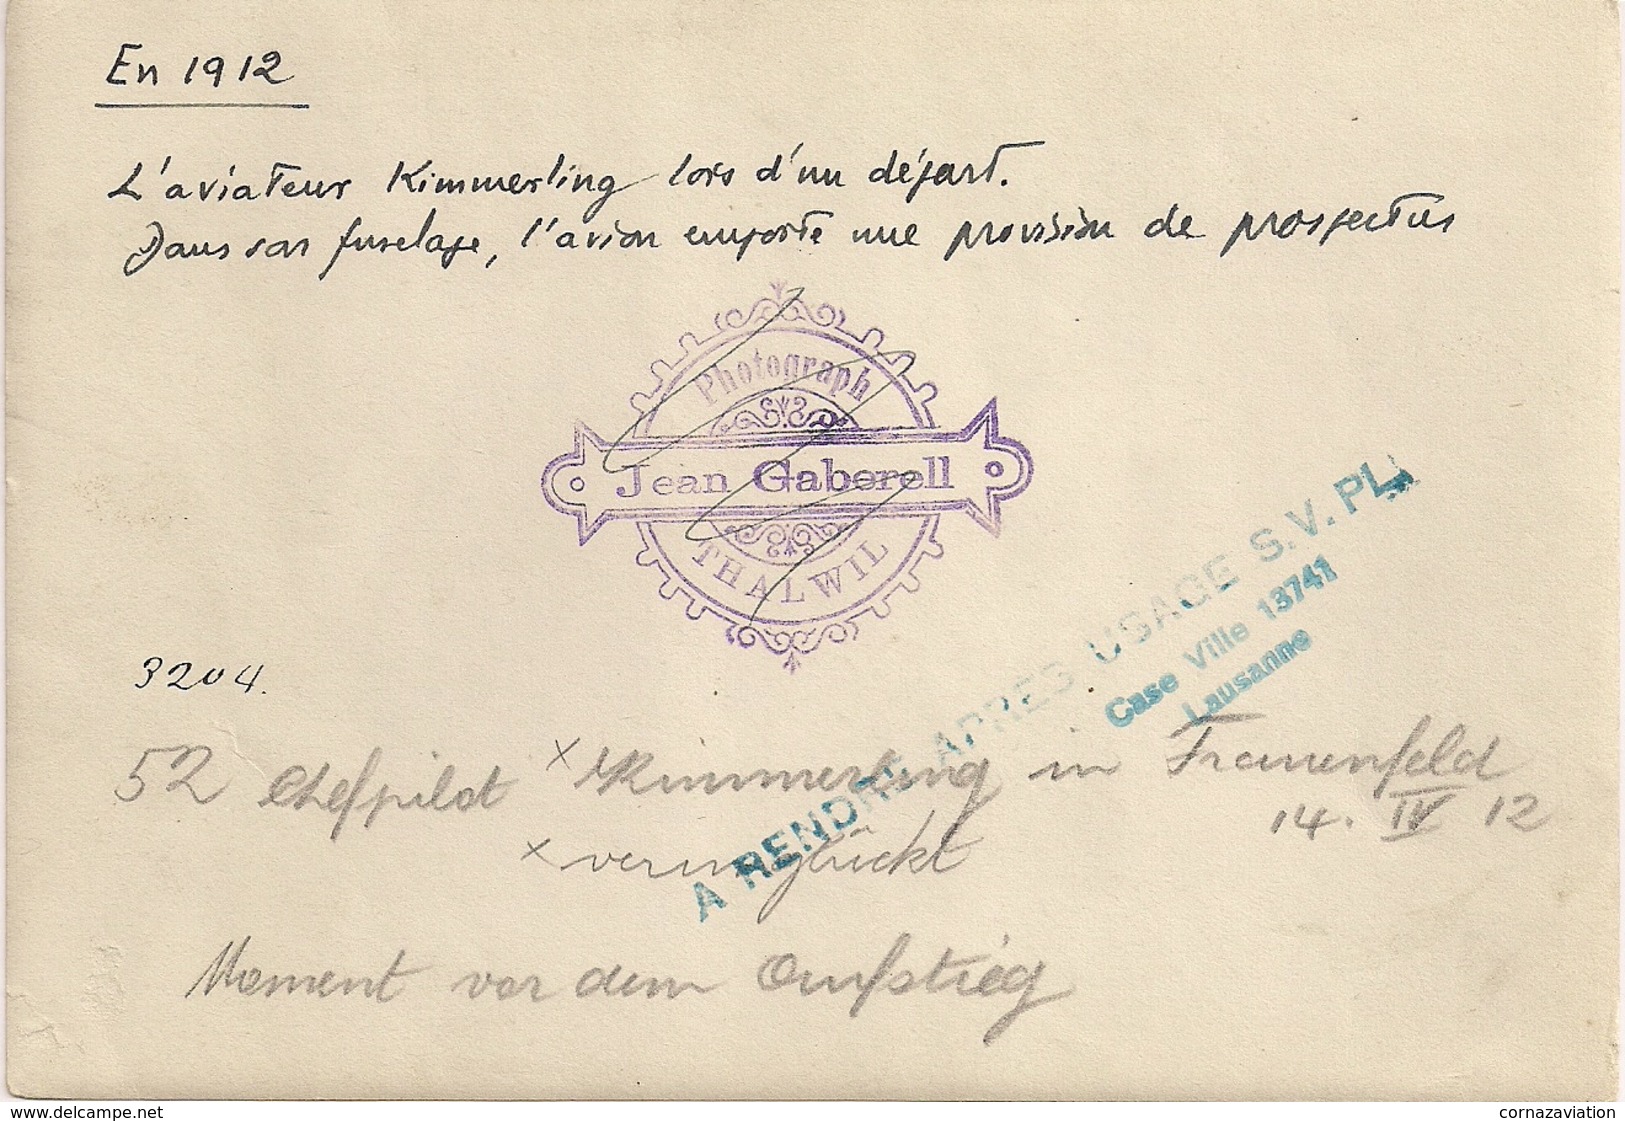 En 1912
L'aviateur Kimmerling lors d'un départ.
Dans son fuselage, l'avion emporte une provision de prospectus
Photograph
Jean Gaberell
THALWIL
A RENDRE APRES USAGE S.V. PL.
Case Ville 13741
Lausanne
3204.
52 Chefpilot × Kimmerling in Frauenfeld
14. IV 12
× verunglückt
Moment vor dem Aufstieg
www.delcampe.net
cornazaviation